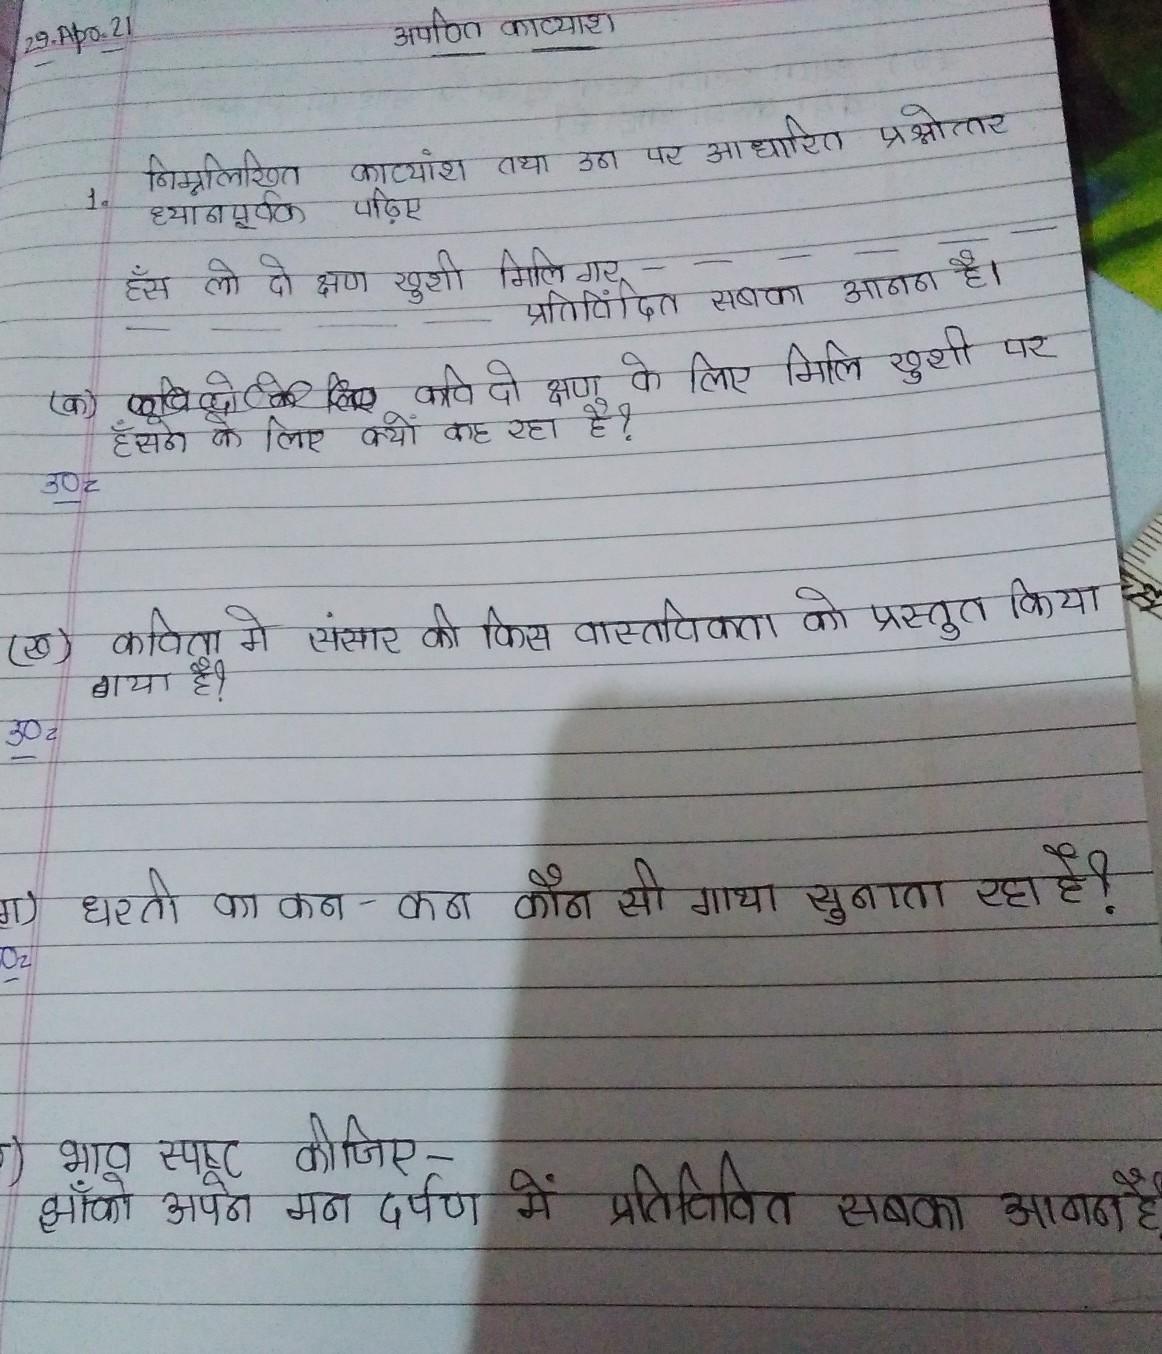 29.Apr.21
अपठित काव्याश
निम्नलिखित काव्यांश तथा उन पर आधारित प्रश्नोत्तर
1. ध्यानपूर्वक पढ़िए
हँस लो दो क्षण खुशी मिलि गर् - - - - - -
- - - - प्रतिविंदित सबका आनन है।
(क) कवि दो क्षण के लिए मिलि खुशी पर
हँसने के लिए क्यों कह रहा है?
उ०=
(ख) कविता मे संसार की किस वास्तविकता को प्रस्तुत किया
गया है?
उ०=
ग) धरती का कन - कन कौन सी गाथा सुनाता रहा है?
०=
) भाव स्पष्ट कीजिए -
झाँको अपने मन दर्पण में प्रतिविवित सबका आनन है